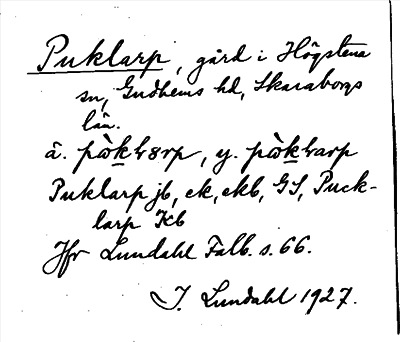 Puklarp, gård i Högstena
sn, Gudhems hd, Skaraborgs
län.
ä. pòklarp, y. pòklarp
Puklarp jb, ek, ekb, GS, Puck-
larp Kb
Jfr Lundahl Falb. s. 66.
I. Lundahl 1927.